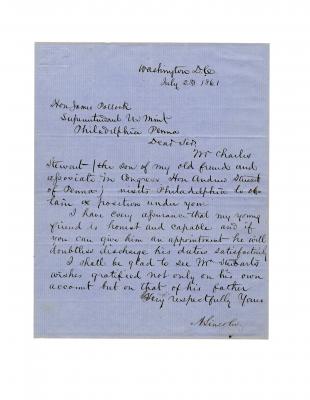 Washington D.C.
July 2nd 1861
Hon James Pollock
Superintendent U.S. Mint
Philadelphia Penna
Dear Sir,
Mr Charles
Stewart (the son of my old friend and
associate in Congress Hon Andrew Stewart
of Penna) visits Philadelphia to ob-
tain a position under you
I have every assurance that my young
friend is honest and capable and if
you can give him an appointment he will
doubtless discharge his duties satisfactorily
I shall be glad to see Mr Stewarts
wishes gratified not only on his own
account but on that of his father
Very respectfully Yours
A Lincoln